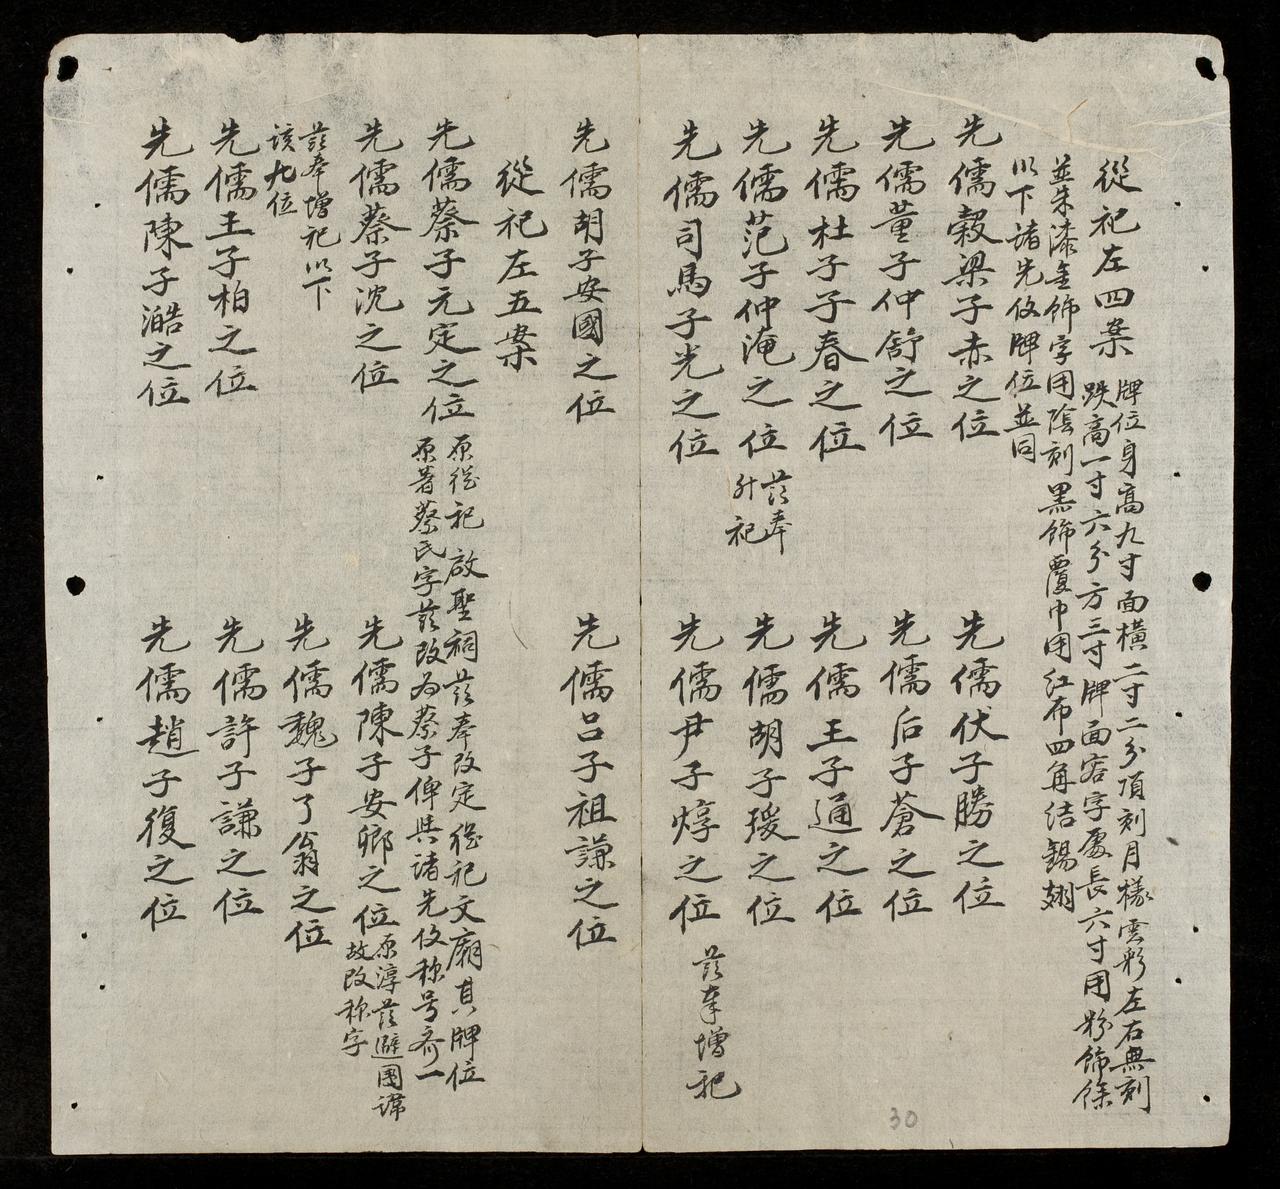 從祀左四案
牌位身高九寸面橫二寸二分項刻月樣雲彩左右無刻
跌高一寸六分方三寸牌面容字處長六寸用粉飾餘
並朱漆金飾字用陰刻黑飾覆巾用紅布四角結錫翅
以下諸先攸牌位並同
先儒穀梁子赤之位
先儒伏子勝之位
先儒董子仲舒之位
先儒后子蒼之位
先儒杜子子春之位
先儒王子通之位
先儒范子仲淹之位
茲奉
升祀
先儒胡子瑗之位
先儒司馬子光之位
先儒尹子焞之位
茲奉增祀
先儒胡子安國之位
先儒呂子祖謙之位
從祀左五案
先儒蔡子元定之位
原從祀 啟聖祠茲奉改定從祀文廟其牌位
原著蔡氏字茲改為蔡子俾與諸先攸称号齐一
先儒蔡子沈之位
先儒陳子安卿之位
原淳茲避國諱
故改称字
茲奉增祀以下
該九位
先儒魏子了翁之位
先儒王子柏之位
先儒許子謙之位
先儒陳子澔之位
先儒趙子復之位
30